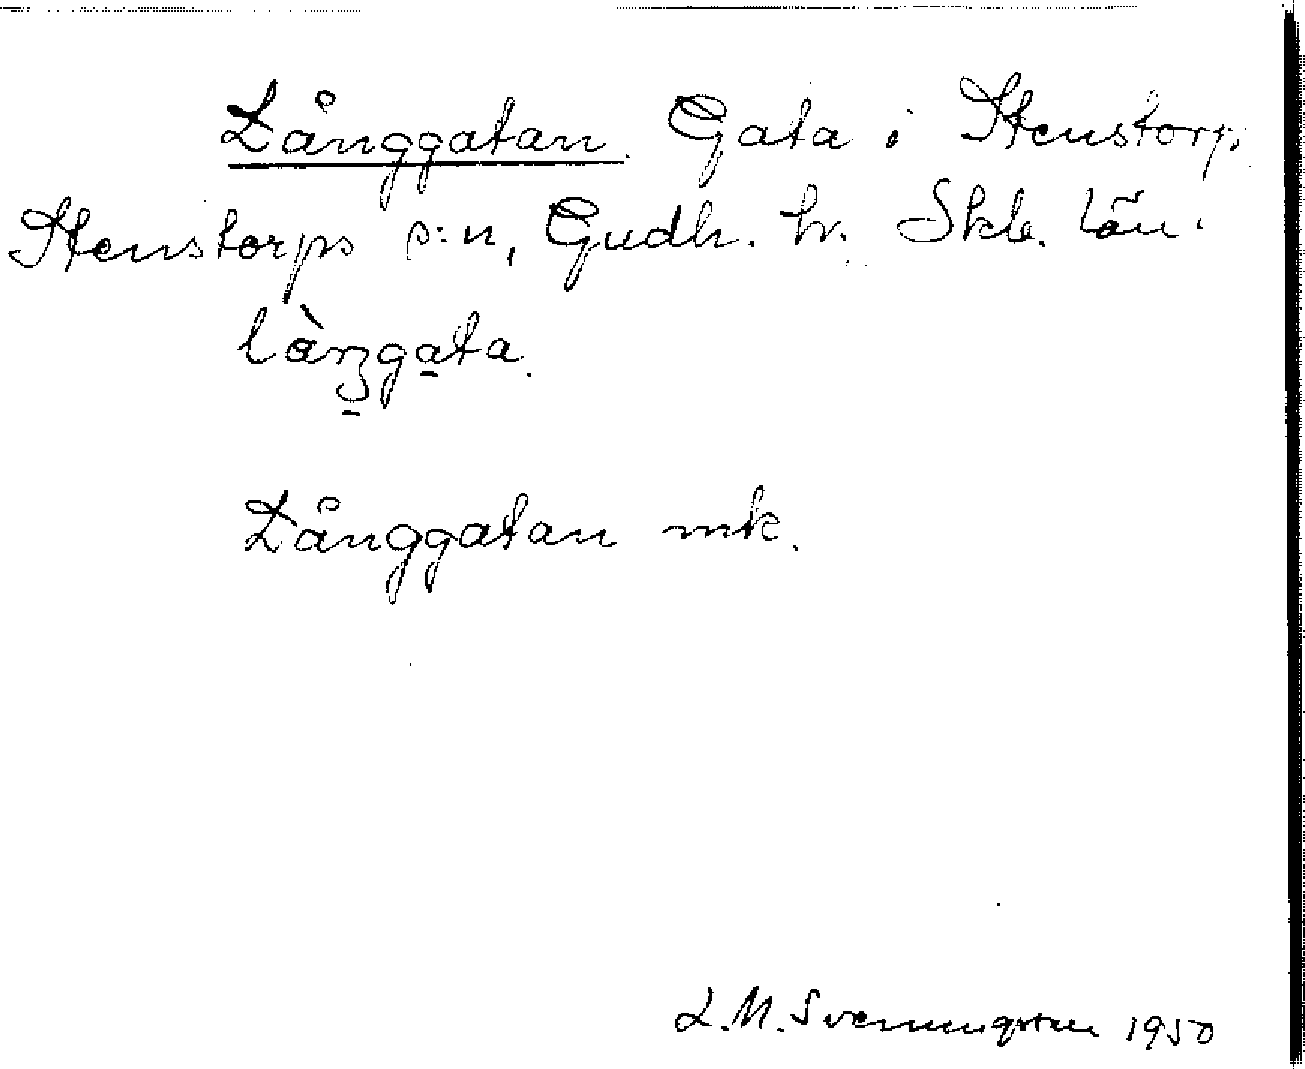 Långgatan. Gata i Stenstorp,
Stenstorps s:n, Gudh. hr. Skb. län.
làŋgata.
Långgatan mk.
L.M. Svenungsson 1950